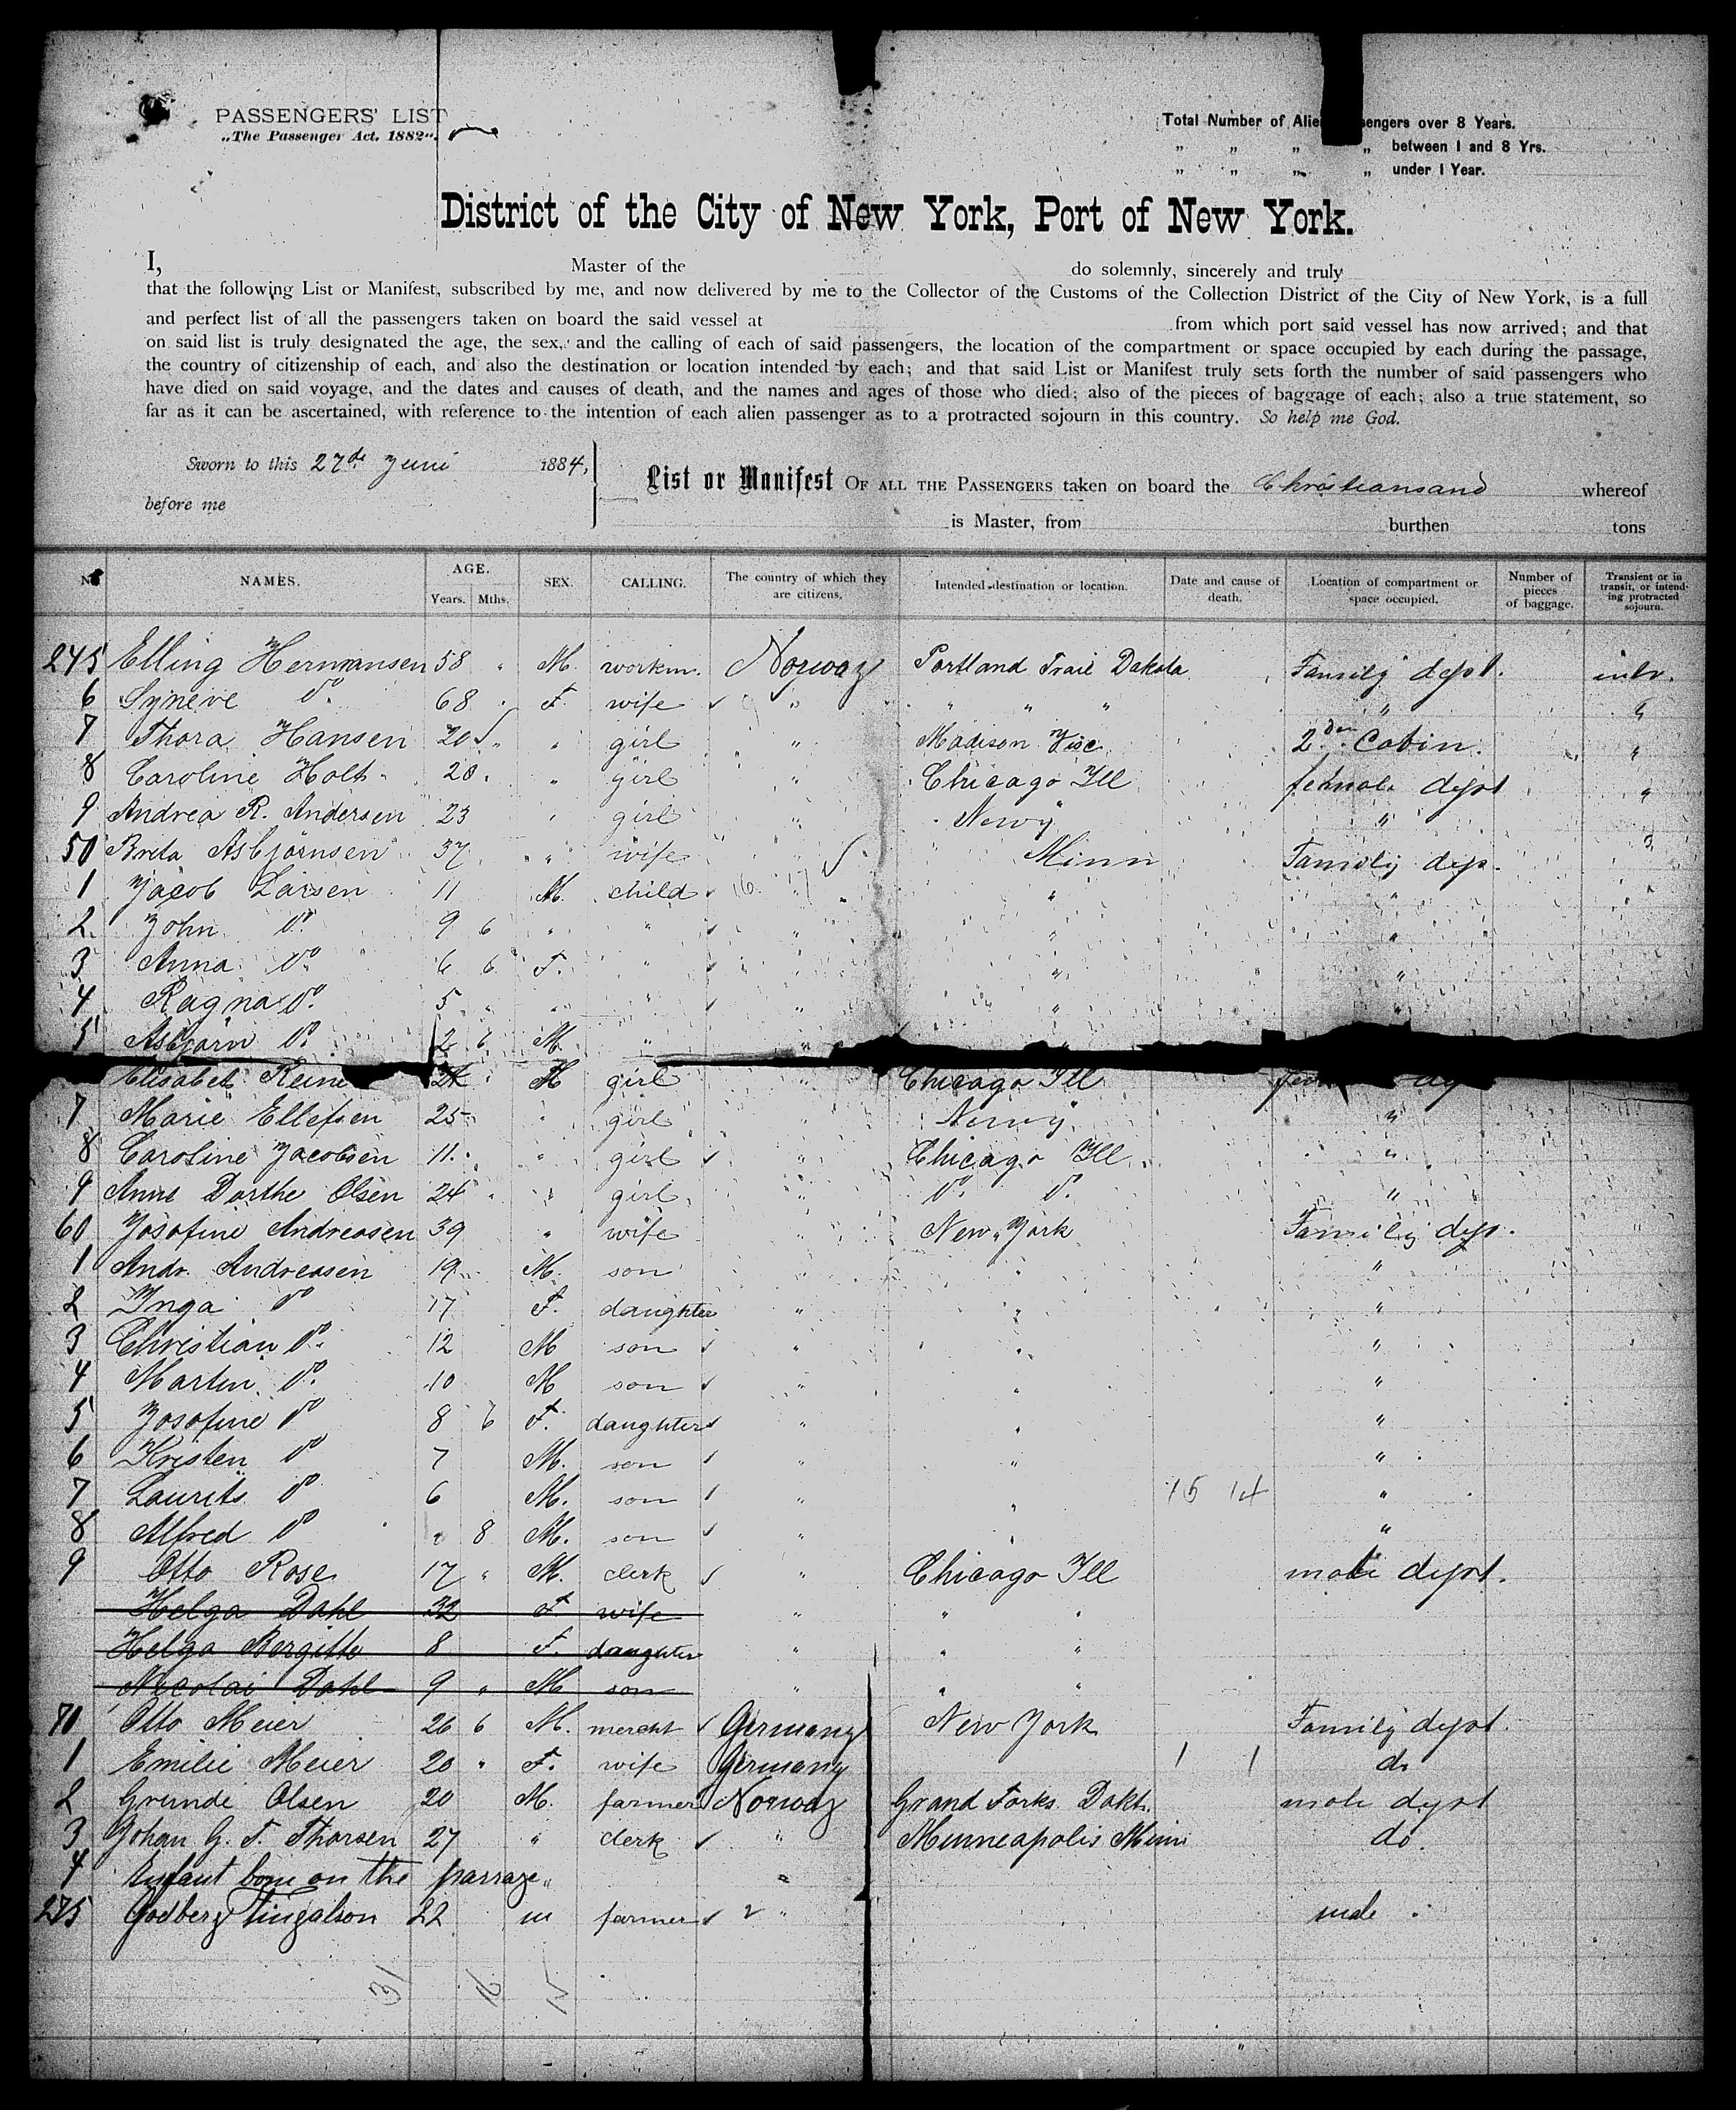 PASSENGERS' LIST
„The Passenger Act. 1882“.
Total Number of Alien Passengers over 8 Years.
„ „ „ „ between 1 and 8 Yrs.
„ „ „ „ under 1 Year.
District of the City of New York, Port of New York.
I, Master of the do solemnly, sincerely and truly
that the following List or Manifest, subscribed by me, and now delivered by me to the Collector of the Customs of the Collection District of the City of New York, is a full
and perfect list of all the passengers taken on board the said vessel at from which port said vessel has now arrived; and that
on said list is truly designated the age, the sex, and the calling of each of said passengers, the location of the compartment or space occupied by each during the passage,
the country of citizenship of each, and also the destination or location intended by each; and that said List or Manifest truly sets forth the number of said passengers who
have died on said voyage, and the dates and causes of death, and the names and ages of those who died; also of the pieces of baggage of each; also a true statement, so
far as it can be ascertained, with reference to the intention of each alien passenger as to a protracted sojourn in this country. So help me God.
Sworn to this 27de Juni 1884,
before me
List or Manifest OF ALL THE PASSENGERS taken on board the Christiansand whereof
is Master, from burthen tons
No NAMES. AGE. Years. Mths. SEX. CALLING. The country of which they are citizens. Intended destination or location. Date and cause of death. Location of compartment or space occupied. Number of pieces of baggage. Transient or in transit, or intending protracted sojourn.
245 Elling Hermansen 58 " M. workm. Norway Portland Trail Dakota Family dept. intr.
6 Syneve do 68 " F. wife " " " " " "
7 Thora Hansen 20 " " girl " Madison Visc. 2den Cabin. "
8 Caroline Holt 20 " girl " Chicago Ill female dept "
9 Andrea R. Andersen 23 " girl " Newy "
50 Brita Asbjörnsen 37 " wife " Minn Family dep. "
1 Jacob Larsen 11 M. child " " "
2. John do 9 6 " " " " "
3 Anna do 6 6 F. " " " "
4 Ragna do 5 " " " " " "
5 Asbjörn do 2 6 M. " "
Elisabet Reine 24 girl " Chicago Ill
7 Marie Ellefsen 25 " girl " Newy "
8 Caroline Jacobsen 11 " girl " Chicago Ill "
9 Anne Dorthe Olsen 24 " girl " do do "
60 Josefine Andreasen 39 " wife " New York Family dept.
1 Andr. Andreasen 19 M. son " " "
2 Inga do 17 F. daughter " " "
3 Christian do 12 M son " " "
4 Martin do 10 M son " " "
5 Josefine do 8 6 F. daughter " " "
6 Kristen do 7 M. son " " "
7 Laurits do 6 M. son " " 15 14 "
8 Alfred do " 8 M. son " " "
9 Otto Rose 17 " M. clerk " Chicago Ill male dept.
Helga Dahl 32 F wife " " "
Helga Bergitte 8 F. daughter " " "
Nicolai Dahl 9 " M son " " "
70 Otto Meier 26 6 M. mercht Germany New York Family dept.
1 Emilie Meier 20 " F. wife Germany 1 1 do
2 Grunde Olsen 20 M. farmer Norway Grand Forks Dakt. male dept
3 Johan G. T. Thorsen 27 " clerk " Minneapolis Minn do
4 Infant born on the passage "
275 Godberg Tingalson 22 m farmer 2 " male
31 16 15